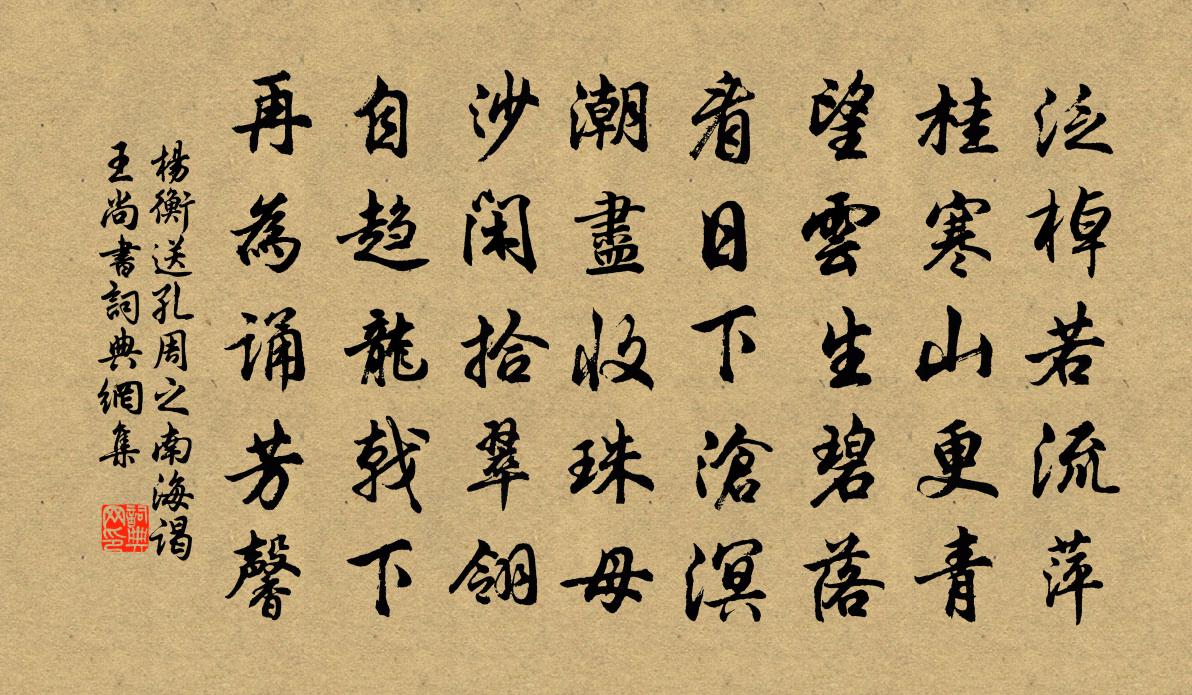 泛棹若流萍
桂寒山更青
望雲生碧落
看日下滄溟
潮盡收珠母
沙閑拾翠翎
自趨龍戟下
再為誦芳馨
楊衡送孔周之南海謁
王尚書詞典網集
詞典
网印